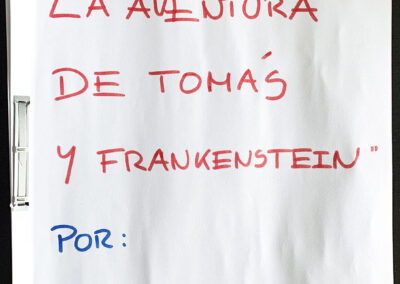 LA AVENTURA
DE TOMÁS
Y FRANKENSTEIN"
POR: